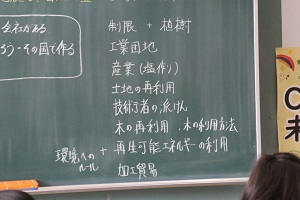 会社がある
その国で作る
制限 + 植樹
工業団地
産業(塩作り)
土地の再利用
技術者の派けん
木の再利用.木の利用方法
環境への
ルール
+ 再生可能エネルギーの利用
加工貿易
未